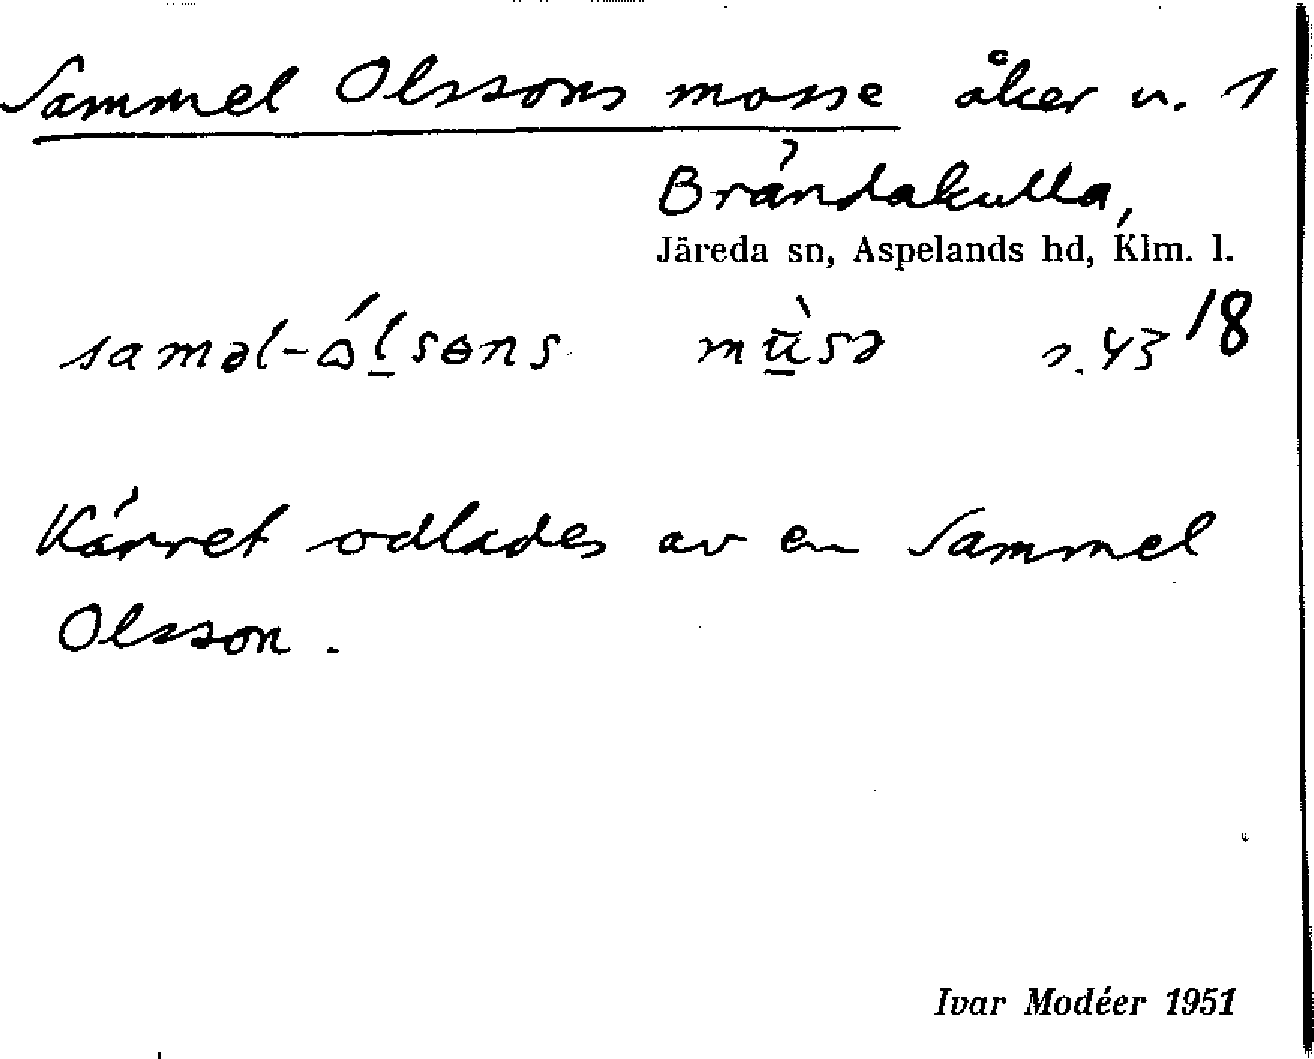 Sammel Olssons mosse åker u. 1
Brändakulla,
Järeda sn, Aspelands hd, Klm. l.
saməl-ólsɵns mùsə s. 43 18
Kärret odlades av en Sammel
Olsson.
Ivar Modéer 1951